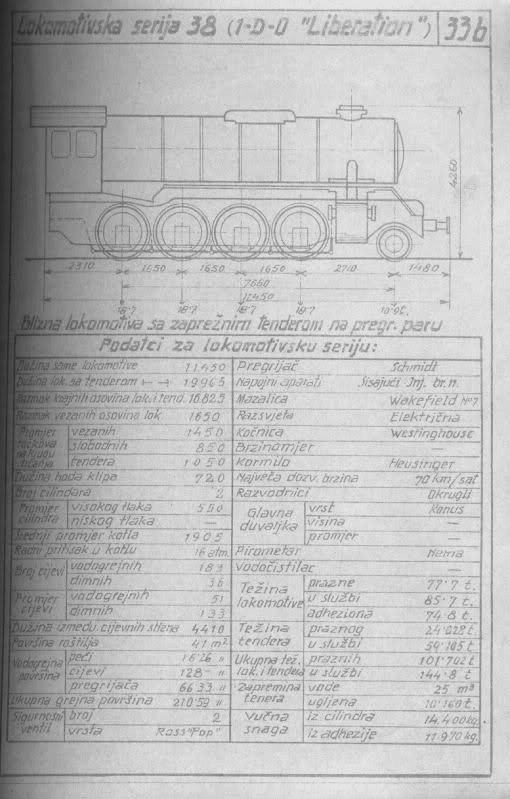 Lokomotivska serija 38 (1-D-0 "Liberation") 33b
4260
2310 1650 1650 1650 2710 1480
7660
11450
18·7 18·7 18·7 18·7 10·9t.
Blizna lokomotiva sa zaprežnim tenderom na pregr. paru
Podatci za lokomotivsku seriju:
Dužina same lokomotive 11.450 Pregrijač Schmidt
Dužina lok. sa tenderom ⊢⊣ 19.965 Napojni aparati Sisajući Inj. br. 11.
Razmak krajnih osovina lok. i tend. 16.825 Mazalica Wakefield Nº 7
Razmak vezanih osovina lok. 1650 Razsvjeta Električna
Promjer točkova na krugu ticanja vezanih 1450 Kočnica Westinghouse
slobodnih 850 Brzinomjer —
tendera 1050 Kormilo Heusinger
Dužina hoda klipa 720 Najveća dozv. brzina 70 km/sat
Broj cilindara 2 Razvodnici Okrugli
Promjer cilindra visokog tlaka 550 Glavna duvaljka vrst Konus
niskog tlaka — visina —
Srednji promjer kotla 1905 promjer —
Radni pritisak u kotlu 16 atm. Pirometar Nema
Broj cijevi vodogrejnih 183 Vodočistilac —
dimnih 36 Težina lokomotive prazne 77·7 t.
Promjer cijevi vodogrejnih 51 u službi 85·7 t.
dimnih 133 adheziona 74·8 t.
Dužina između cijevnih stiena 4410 Težina tendera praznog 24·028 t.
Površina roštilja 4·1 m² u službi 59·105 t.
Vodogrejna površina peći 16·26 " Ukupna tež. lok. i tendera praznih 101·702 t
cijevi 128·— " u službi 144·8 t
pregrijača 66·33 " Zapremina tenera vode 25 m³
Ukupna grejna površina 210·59 " ugljena 10·160 t.
Sigurnosni ventil broj 2 Vučna snaga iz cilindra 14.400 kg.
vrsta Ross "Pop" iz adhezije 11.970 kg.